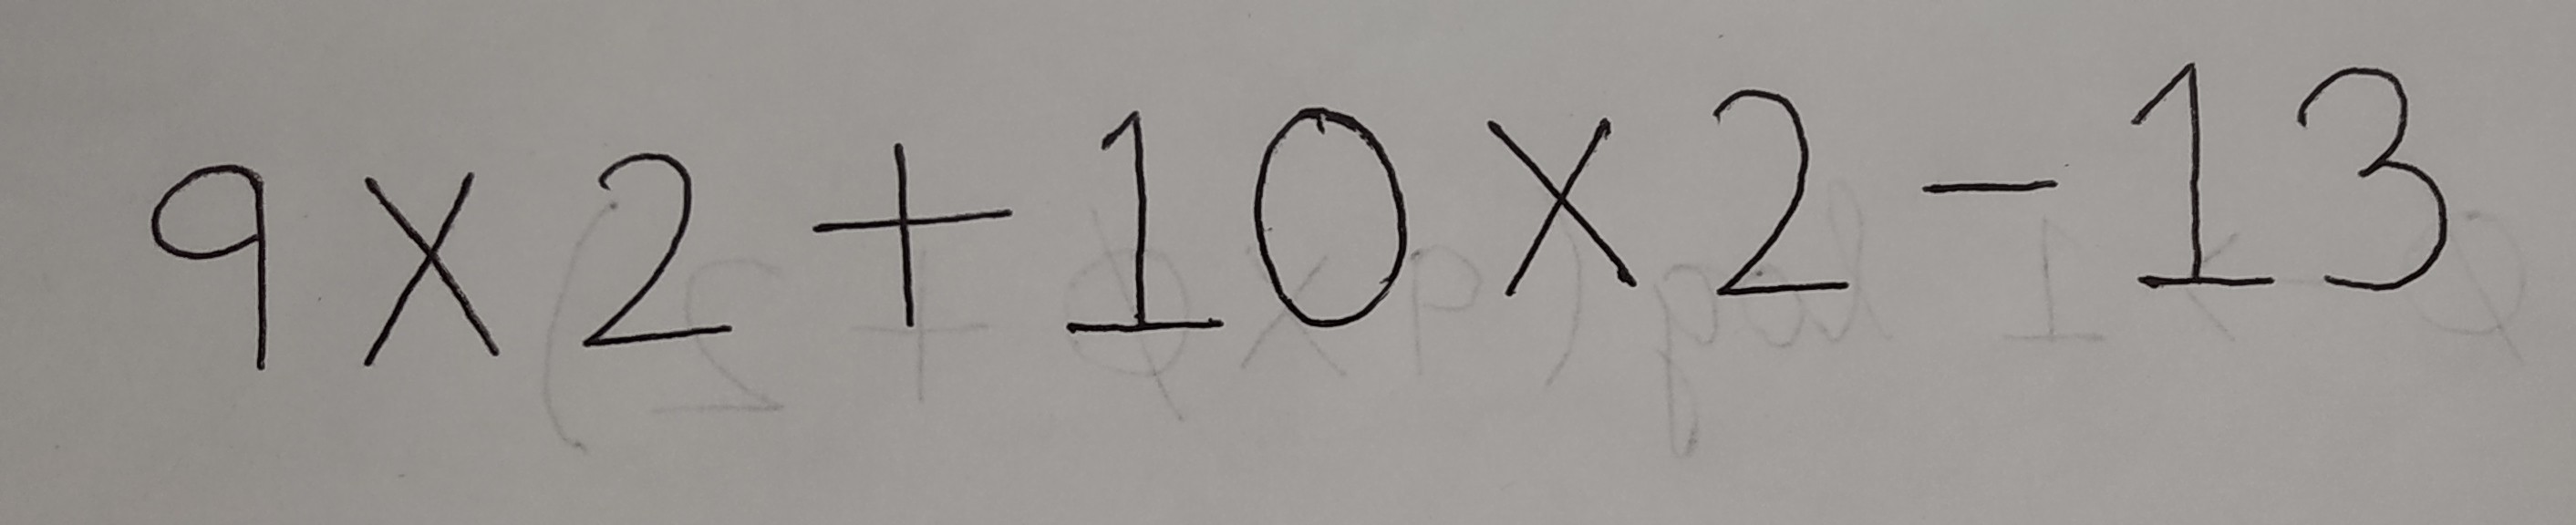 9 × 2 + 10 × 2 - 13